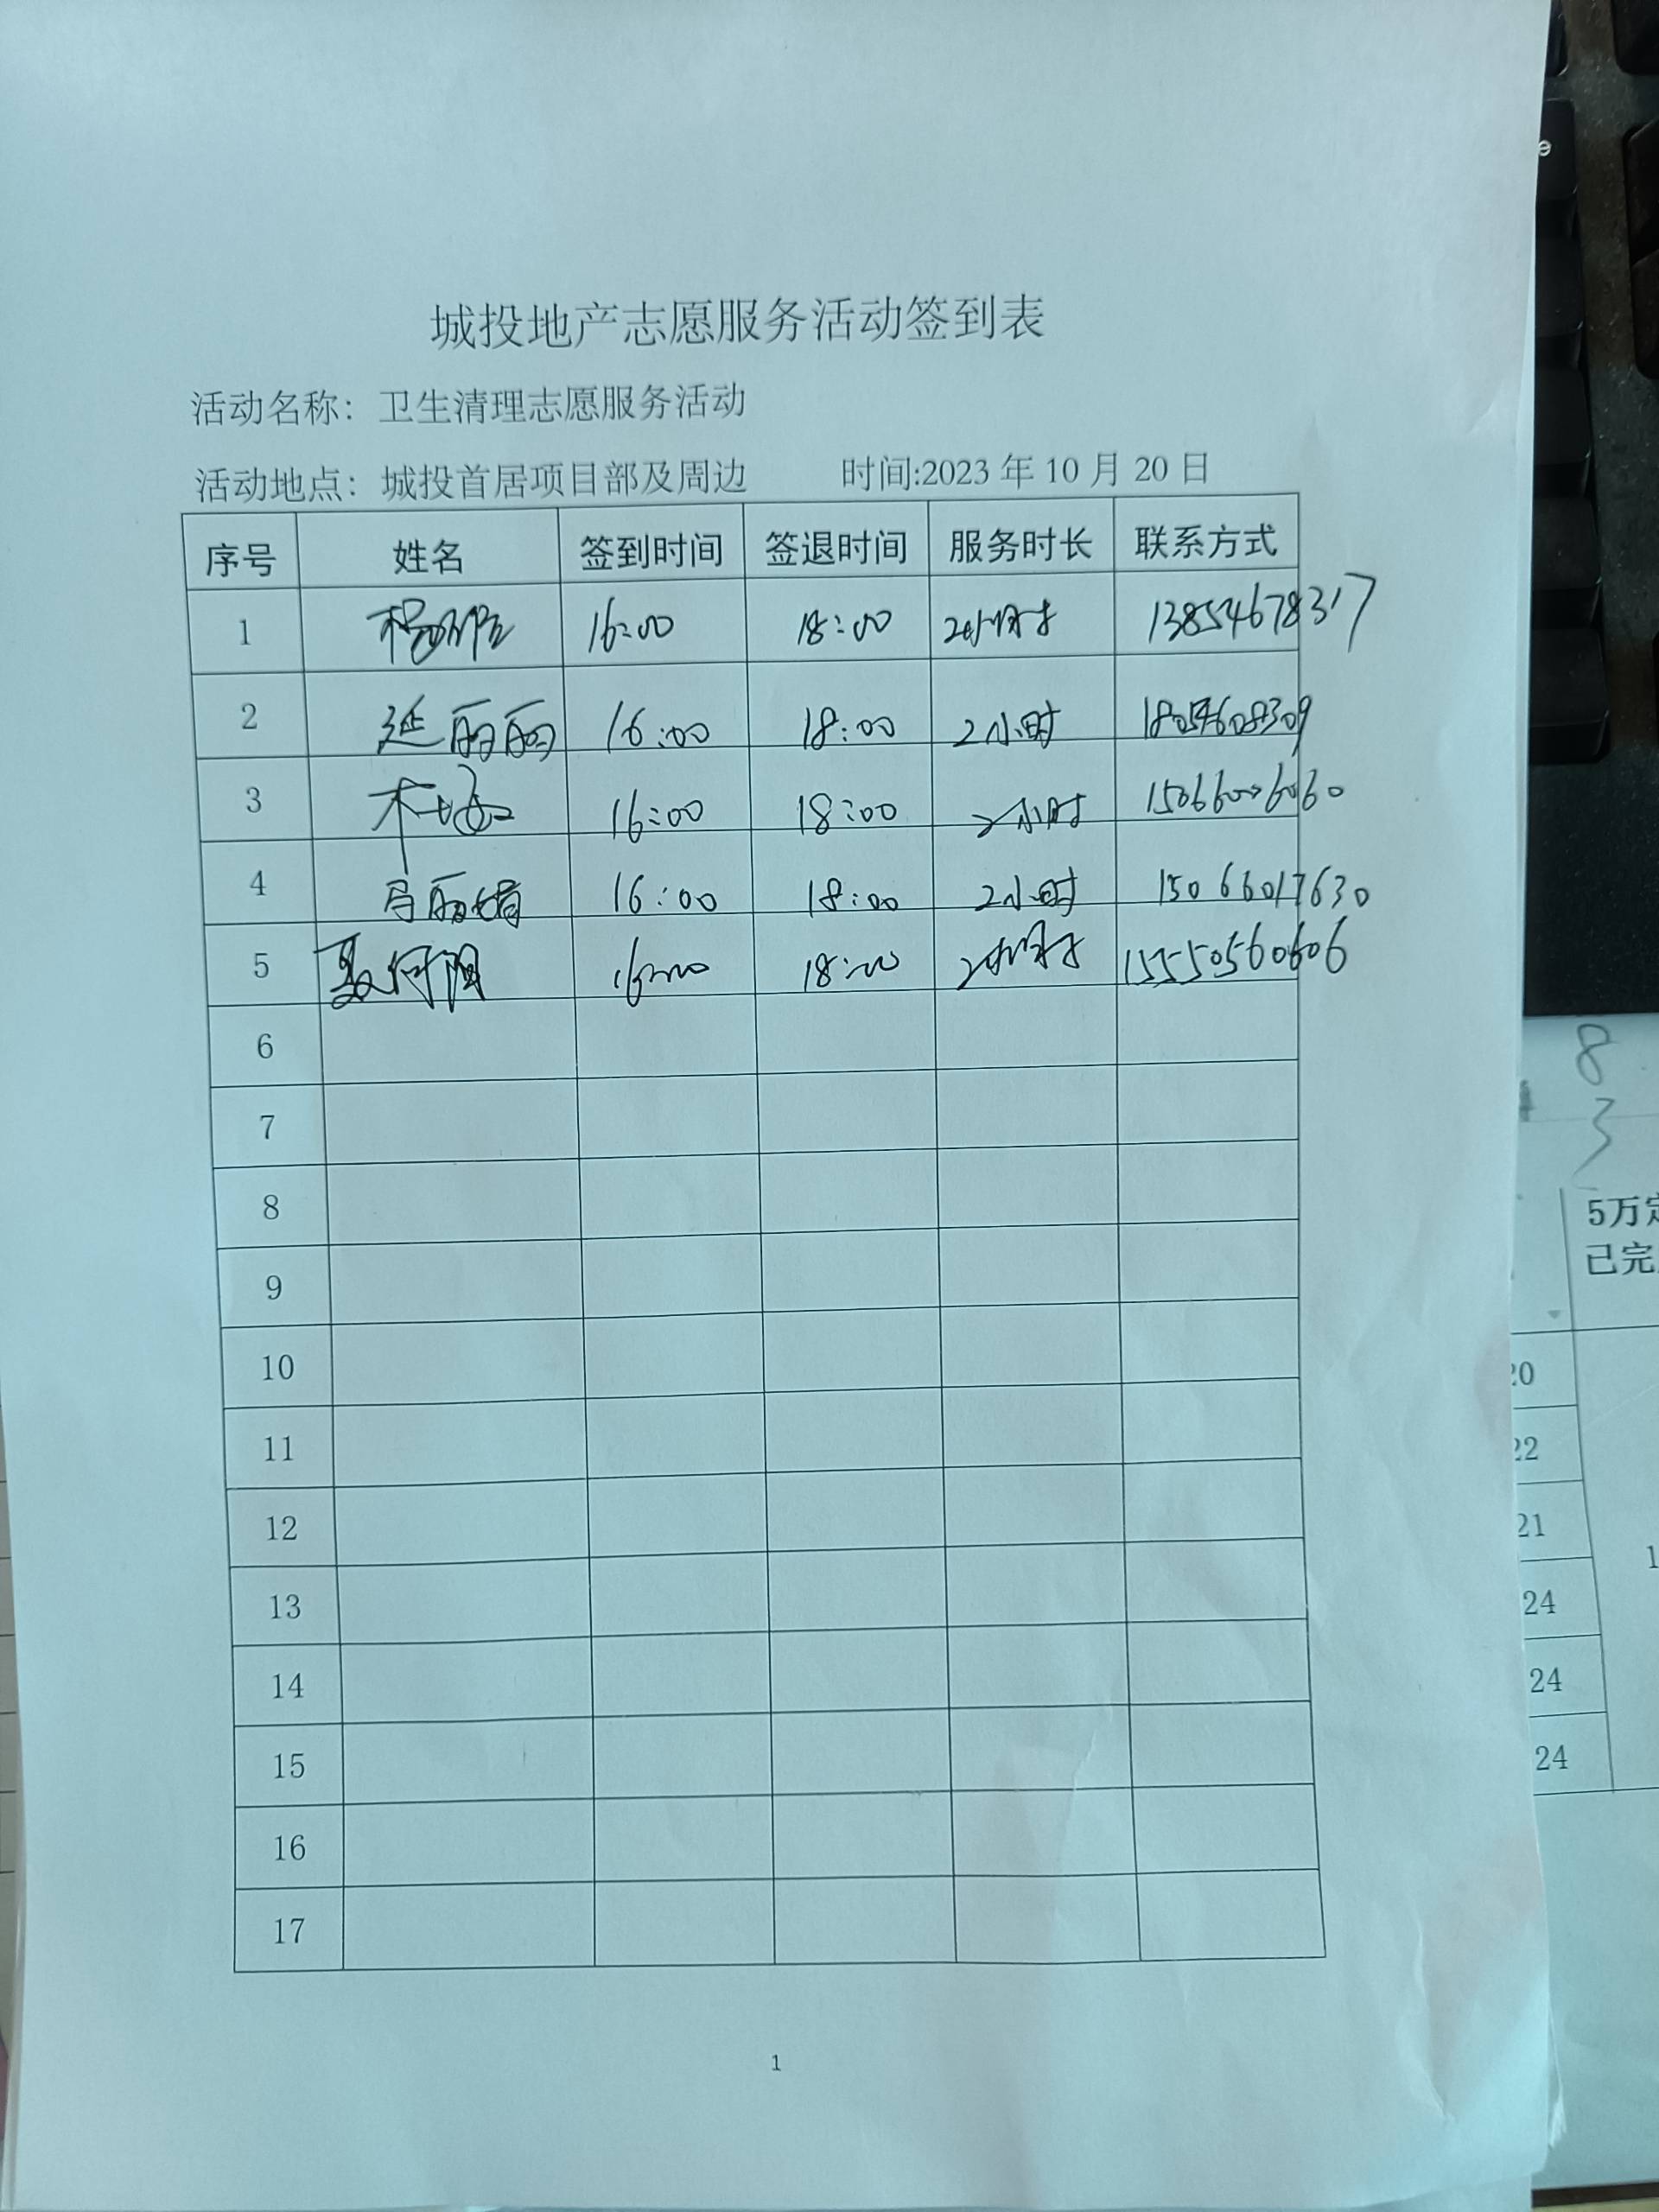 城投地产志愿服务活动签到表
活动名称：卫生清理志愿服务活动
活动地点：城投首居项目部及周边 时间:2023 年 10 月 20 日
序号 姓名 签到时间 签退时间 服务时长 联系方式
1 16:00 18:00 2小时 13854678317
2 延丽丽 16:00 18:00 2小时 18054608309
3 16:00 18:00 2小时 15066006060
4 丽娟 16:00 18:00 2小时 15066017630
5 16:00 18:00 2小时 15550560606
6
7
8
9
10
11
12
13
14
15
16
17
1
8
3
5万
已完
20
22
21
1
24
24
24